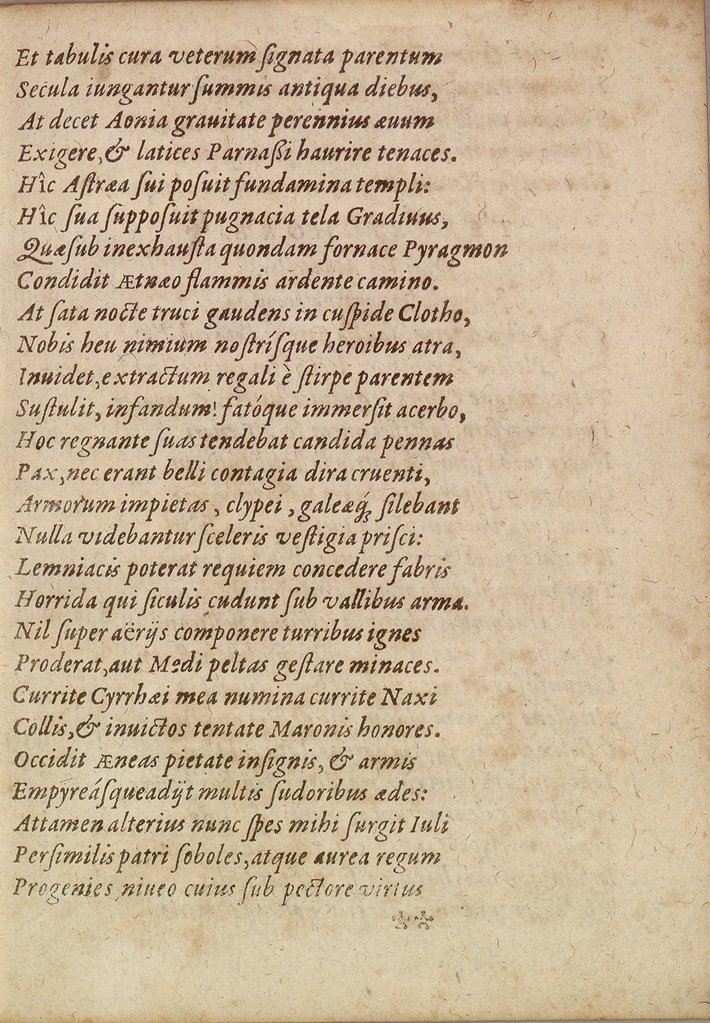 Et tabulis cura veterum ſignata parentum
Secula iungantur ſummis antiqua diebus,
At decet Aonia grauitate perennius æuum
Exigere, & latices Parnaßi haurire tenaces.
Hîc Aſtræa ſui poſuit fundamina templi:
Hîc ſua ſuppoſuit pugnacia tela Gradiuus,
Quæ ſub inexhauſta quondam fornace Pyragmon
Condidit Ætnæo flammis ardente camino.
At ſata nocte truci gaudens in cuſpide Clotho,
Nobis heu nimium noſtríſque heroibus atra,
Inuidet, extractum regali è ſtirpe parentem
Suſtulit, infandum! fatóque immerſit acerbo,
Hoc regnante ſuas tendebat candida pennas
Pax, nec erant belli contagia dira cruenti,
Armorum impietas, clypei, galeæq́; ſilebant
Nulla videbantur ſceleris veſtigia priſci:
Lemniacis poterat requiem concedere fabris
Horrida qui ſiculis cudunt ſub vallibus arma.
Nil ſuper aërijs componere turribus ignes
Proderat, aut Medi peltas geſtare minaces.
Currite Cyrrhæi mea numina currite Naxi
Collis, & inuictos tentate Maronis honores.
Occidit Æneas pietate inſignis, & armis
Empyreáſque adijt multis ſudoribus ædes:
Attamen alterius nunc ſpes mihi ſurgit Iuli
Perſimilis patri ſoboles, atque aurea regum
Progenies niueo cuius ſub pectore virtus
⁂